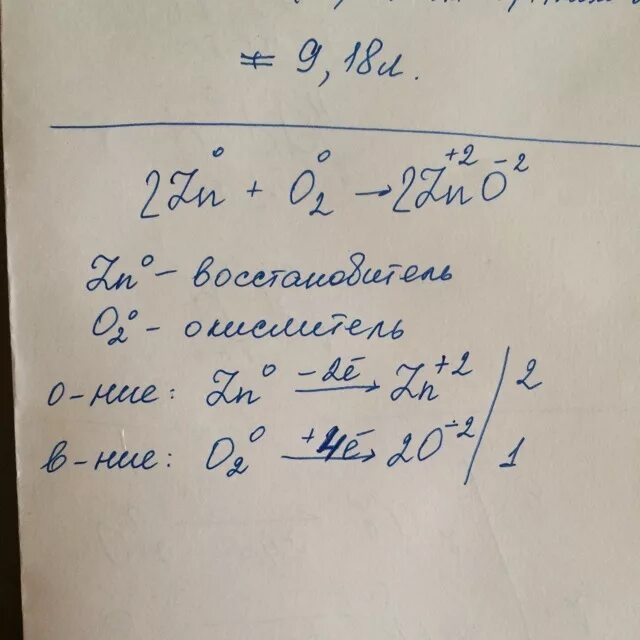 = 9,18л.
2Zn⁰ + O₂⁰ → 2Zn⁺²O⁻²
Zn⁰ – восстановитель
O₂⁰ – окислитель
о-ние: Zn⁰ –2ē→ Zn⁺² / 2
в-ние: O₂⁰ +4ē→ 2O⁻² / 1